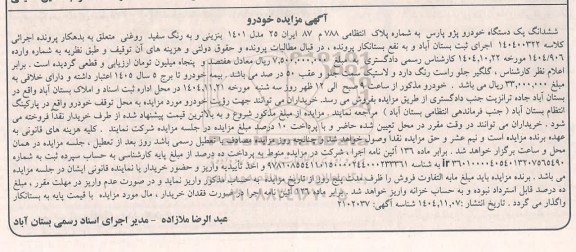 آگهی مزایده خودرو
ششدانگ یک دستگاه خودرو پژو پارس به شماره پلاک انتظامی ۷۸۸ م ۸۷ ایران ۲۵ مدل ۱۴۰۱ بنزینی و به رنگ سفید روغنی متعلق به بدهکار پرونده اجرائی
کلاسه ۱۴۰۴۰۰۳۲۲ اجرای ثبت بستان آباد و به نفع بستانکار پرونده ، در قبال مطالبات پرونده و حقوق دولتی و هزینه های آن توقیف و طبق نظریه به شماره وارده
۱۴۰۴/۹۰۶ مورخه ۱۴۰۴,۱۰,۲۲ کارشناس رسمی دادگستری به مبلغ ۷,۵۵۰,۰۰۰,۰۰۰ ریال معادل هفتصد و پنجاه میلیون تومان ارزیابی و قطعی گردیده است . برابر
اعلام نظر کارشناس ، گلگیر جلو راست رنگ دارد و لاستیک جلو و عقب ۵۰ در صد می باشد . بیمه خودرو تا برج ۵ سال ۱۴۰۵ اعتبار داشته و دارای خلافی به
مبلغ ۳۳,۰۰۰,۰۰۰ ریال می باشد . خودرو مذکور از ساعت ۹ صبح الی ۱۲ ظهر روز سه شنبه مورخه ۱۴۰۴,۱۱,۲۱ در محل اداره ثبت اسناد و املاک بستان آباد واقع در
بستان آباد جاده ترانزیت جنب دادگستری از طریق مزایده بفروش می رسد. خریداران می توانند جهت رویت خودرو مورد مزایده به محل توقف خودرو واقع در پارکینگ
انتظام بستان آباد ( جنب فرماندهی انتظامی بستان آباد ) مراجعه نمایند . مزایده از مبلغ مذکور شروع و به بالاترین قیمت پیشنهاد شده از طرف خریدار نقدا فروخته می
شود . خریداران می توانند در وقت مقرر در محل تعیین شده حاضر و با پرداخت ۱۰ درصد مبلغ مزایده در جلسه مزایده شرکت نمایند . کلیه هزینه های قانونی به
عهده برنده مزایده است و نیم عشر و حق مزایده نقدا وصول خواهد شد. چنانچه روز مزایده مصادف با تعطیل رسمی باشد روز بعد از تعطیل ، جلسه مزایده در همان
محل و ساعت برگزار خواهد شد . برابر ماده ۱۳۶ آئین نامه اجرا ، شرکت در مزایده منوط به پرداخت ده درصد از مبلغ پایه کارشناسی به حساب سپرده ثبت به شماره
می باشد . برنده مزایده باید مبلغ مابه التفاوت فروش را ظرف مدت پنج روز از تاریخ مزایده به حساب مذکور واریز نماید و در صورت عدم واریز در مهلت مقرر ، مبلغ
ده درصد قابل استرداد نبوده و به حساب خزانه واریز خواهد شد . برابر ماده ۱۳۶ آئین نامه اجرا در صورت فقدان خریدار ، مال مورد مزایده با قیمت پایه به بستانکار
واگذار می گردد . تاریخ انتشار :۱۴۰۴,۱۱,۰۷ شناسه آگهی: ۲۱۰۲۰۳۷
عبد الرضا ملازاده - مدیر اجرای اسناد رسمی بستان آباد